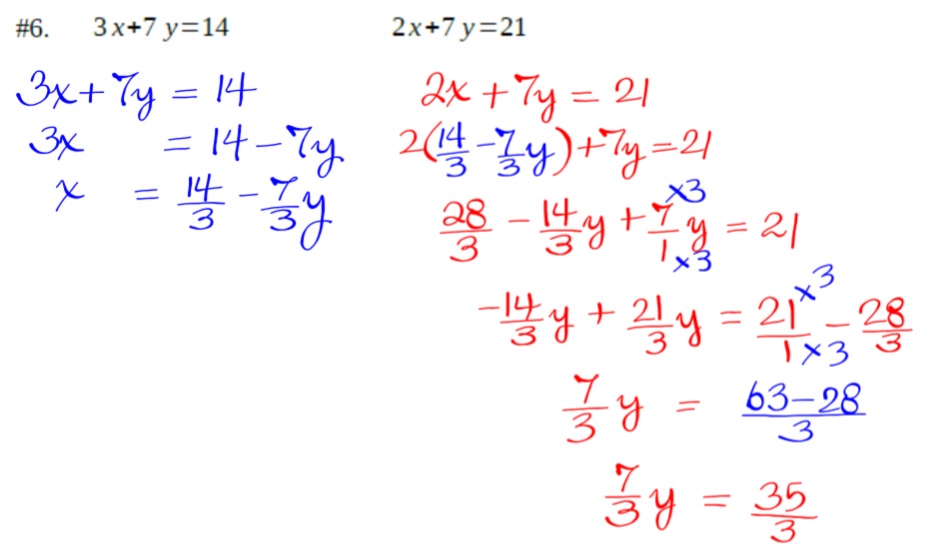 #6. 3x+7y=14 2x+7y=21
3x + 7y = 14
3x = 14 - 7y
x = 14/3 - 7/3 y
2x + 7y = 21
2(14/3 - 7/3 y) + 7y = 21
28/3 - 14/3 y + 7×3/1×3 y = 21
-14/3 y + 21/3 y = 21×3/1×3 - 28/3
7/3 y = 63-28/3
7/3 y = 35/3